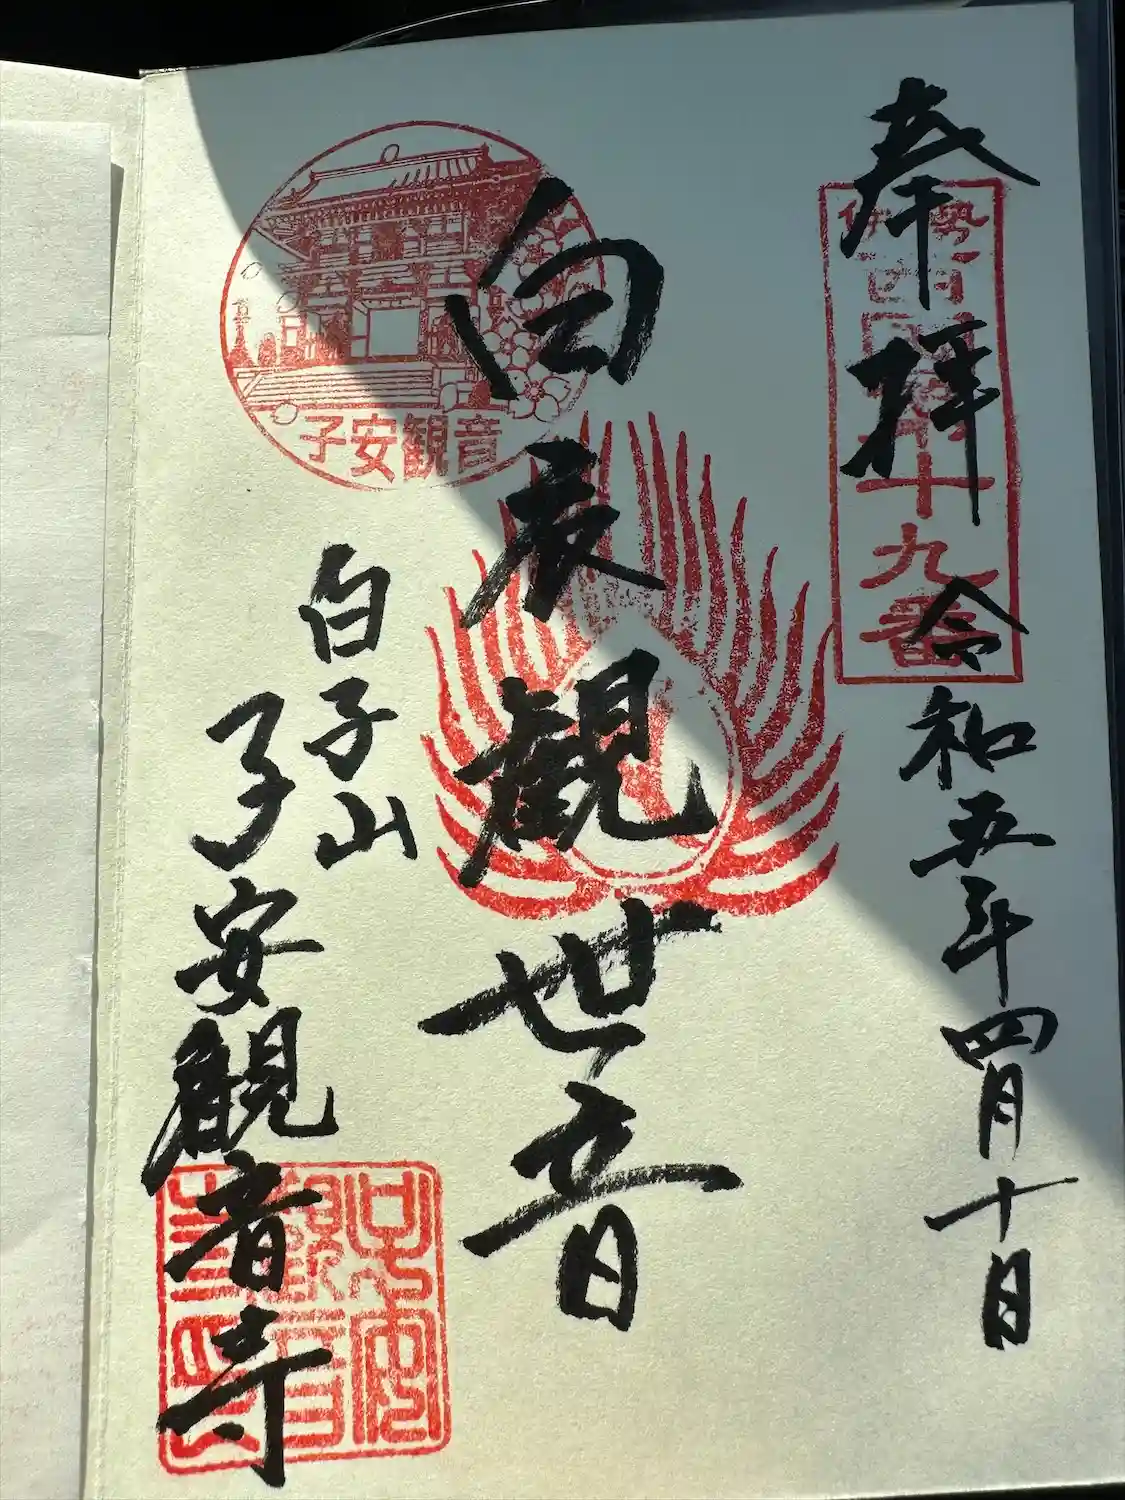 奉拝
伊勢西国第十九番
令和五年四月十日
白衣観世音
子安観音
白子山
子安観音寺